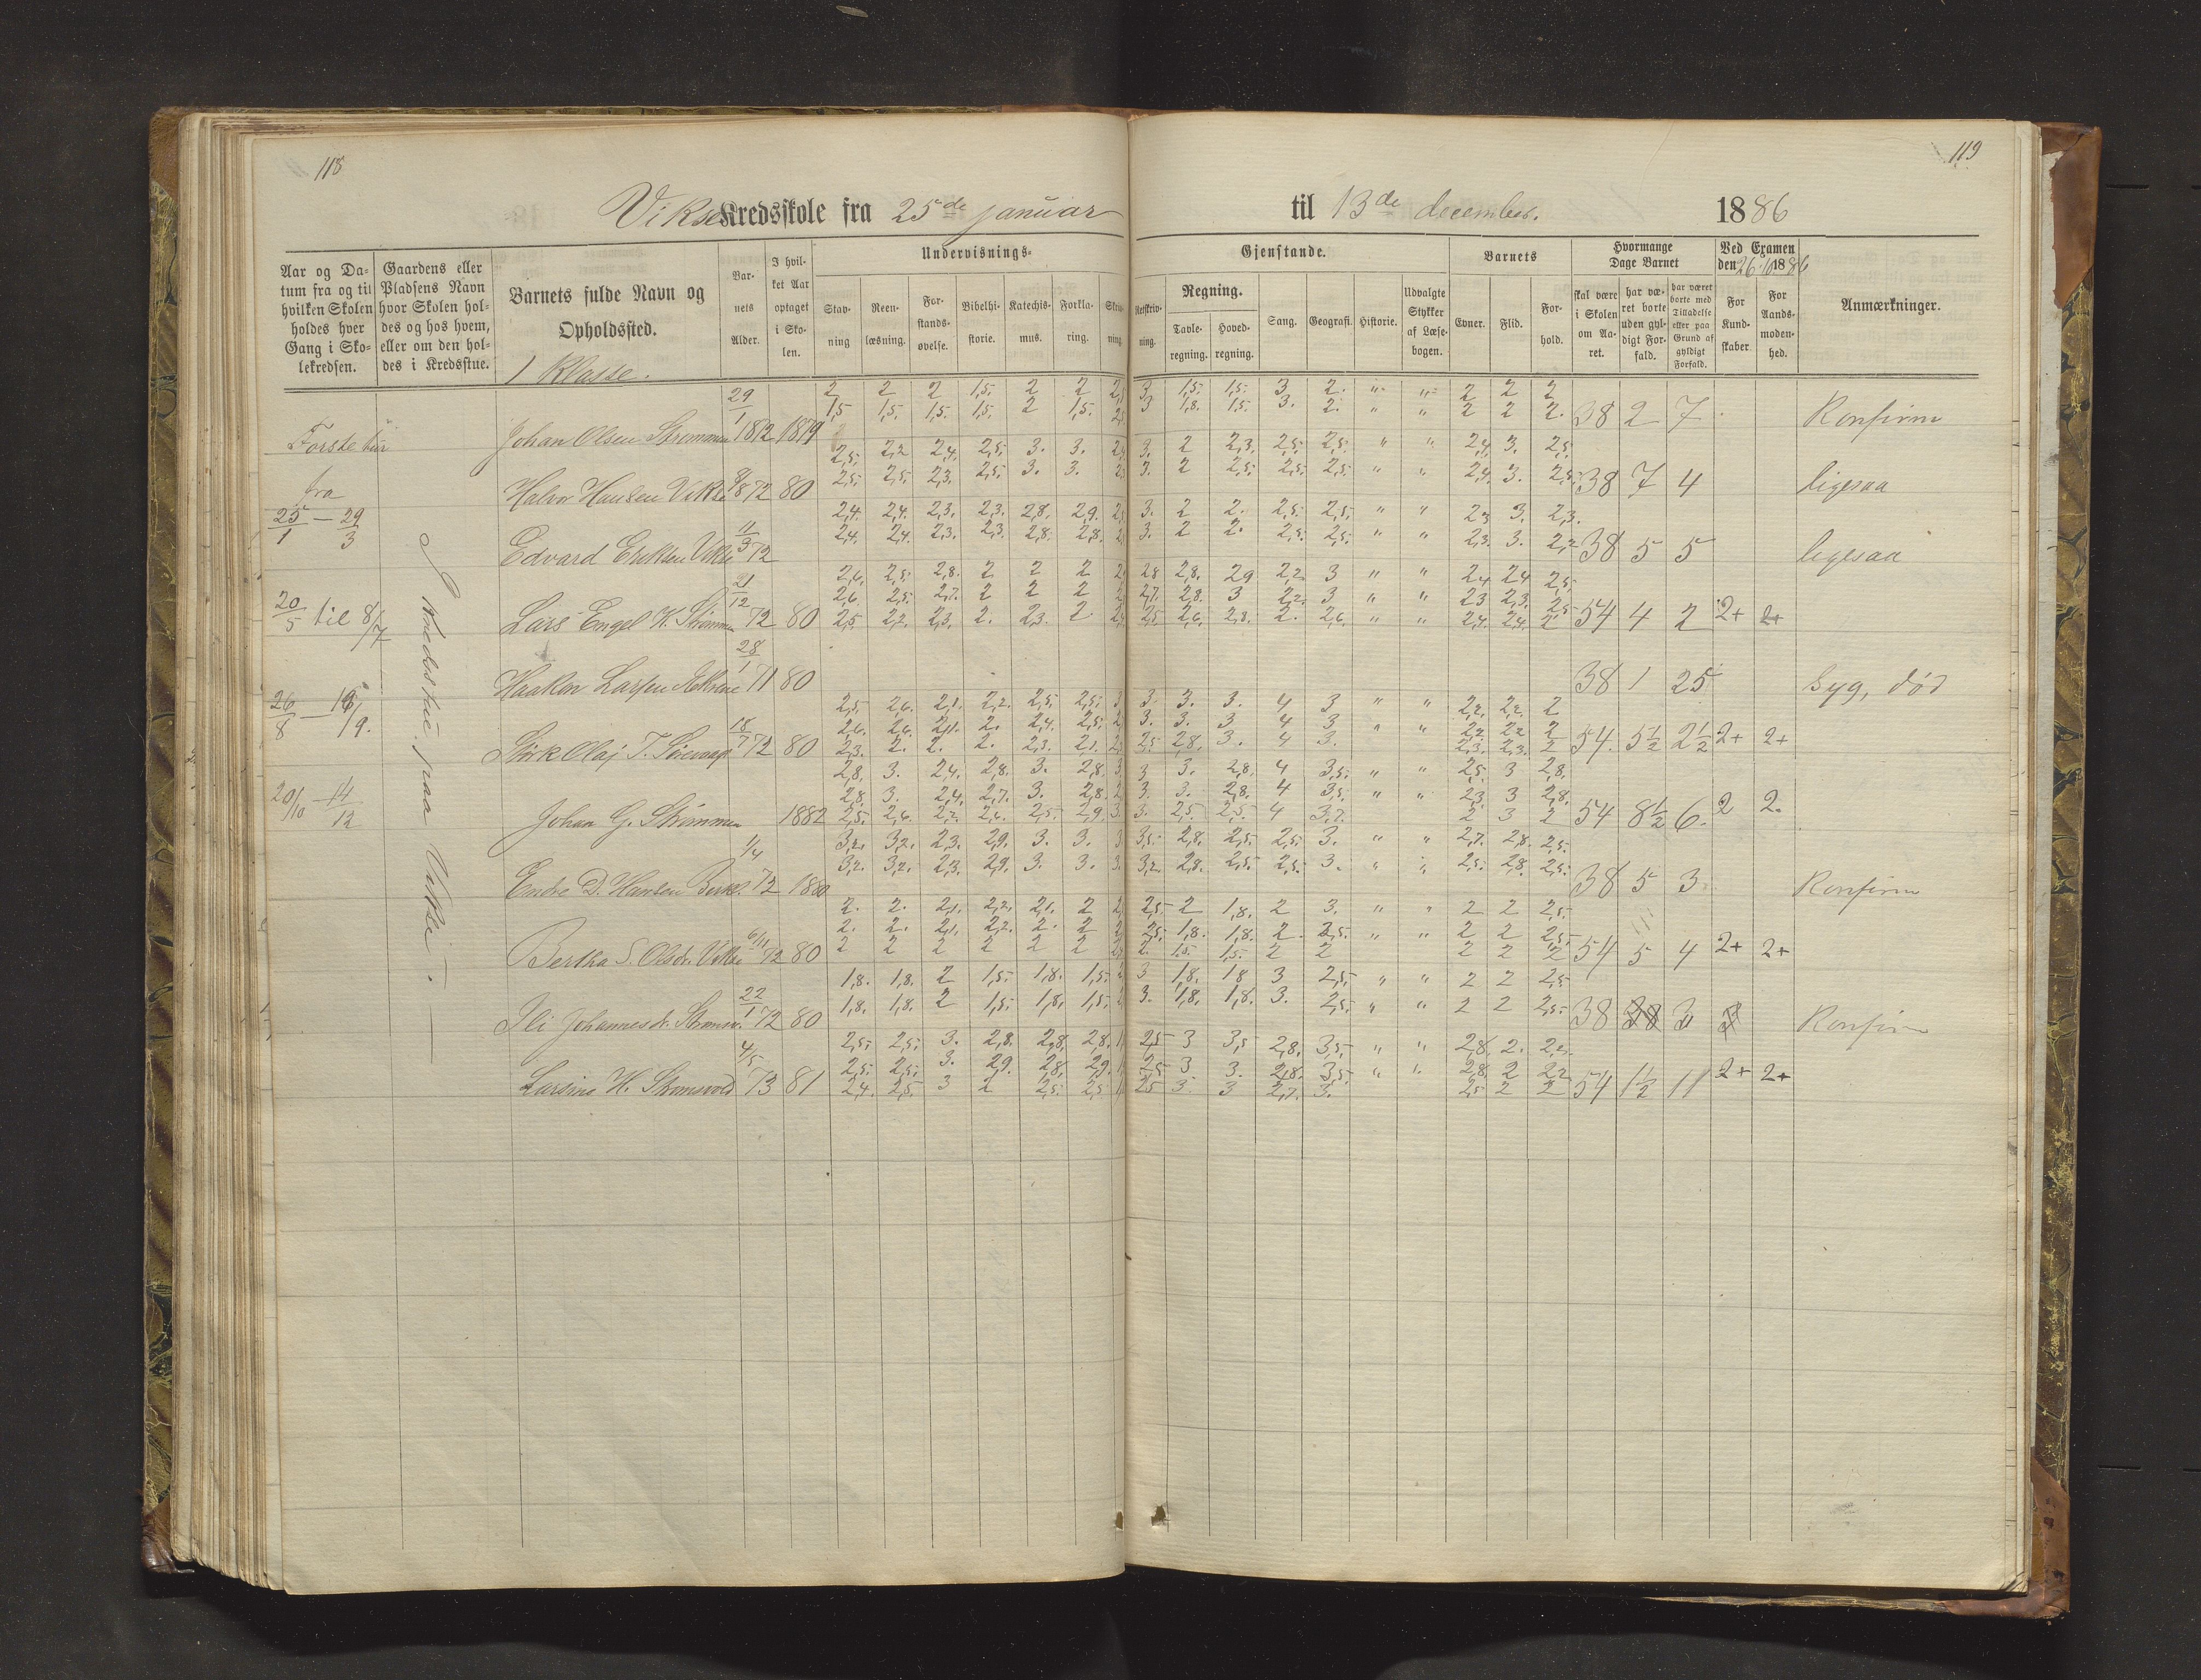 118
Vikse Kredsskole fra 25de januar
Aar og Da-
tum fra og til
hvilken Skolen
holdes hver
Gang i Sko-
lekredsen.
Gaardens eller
Pladsens Navn
hvor Skolen hol-
des og hos hvem,
eller om den hol-
des i Kredsstue.
Barnets fulde Navn og
Opholdssted.
1 Klasse.
Bar-
nets
Alder.
I hvil-
ket Aar
optaget
i Sko-
len.
Undervisnings-
Stav-
ning
Reen-
læsning.
For-
stands-
øvelse.
Bibelhi-
storie.
Katechis-
mus.
Forkla-
ring.
Skriv-
ning
Første tur
fra
25/1 — 29/3
20/5 til 8/7
26/8 — 16/9.
20/10 — 14/12
I Kredsstue paa Vikse.
2 2 2 1,5. 2 2
Johan Olsen Strømmen 29/1 1872 1879 1,5 1,5. 1,5. 1,5. 2 1,5.
2,5. 2,2 2,4. 2,5. 3. 3.
Halvor Hansen Vikse 9/8 72 80 2,5. 2,5. 2,3. 2,5. 3. 3.
2,4. 2,4. 2,3. 2,3. 2,8. 2,9.
Edvard Eriksen Vikse 11/3 72 2,4. 2,4. 2,3. 2,3. 2,8. 2,8.
2,6. 2,5. 2,8. 2 2 2
2,6. 2,5. 2,7. 2 2 2
Lars Engel K. Strømmen 21/12 72 80 2,5. 2,2. 2,3. 2. 2,3. 2
Haakon Larsen 28/1 71 80
2,5 2,6. 2,1. 2,2. 2,5. 2,5.
2,6. 2,6. 2,1. 2. 2,4. 2,5.
Olaj T. 18/7 72 80 2,3. 2. 2. 2. 2,3. 2,1.
2,8. 3. 2,4. 2,8. 3. 2,8.
2,8. 3. 2,4. 2,7. 3. 2,8.
Johan G. Strømmen 1882 2,5. 2,6. 2,2. 2,6. 2,5. 2,9.
3,2. 3,2. 2,3. 2,9. 3. 3.
Endre D. Hansen 1/4 72 1880 3,2. 3,2. 2,3. 2,9. 3. 3.
2. 2. 2,1. 2,2. 2,1. 2
2. 2. 2,1. 2,2. 2. 2
Bertha S. Olsdr. Vikse 6/11 72 80 2 2 2 2 2 2
1,8. 1,8. 2 1,5. 1,8. 1,5.
Ili Johannesdr. 22/1 72 80 1,8. 1,8. 2 1,5. 1,8. 1,5.
2,5. 2,5. 3. 2,8. 2,8. 2,8.
2,5. 2,5. 3. 2,9. 2,8. 2,9.
Larsine H. Strømsvold 4/5 73 81 2,4. 2,5. 3 2 2,5. 2,5
119
til 13de december. 1886
Gjenstande.
Retskriv-
ning.
Regning.
Tavle-
regning.
Hoved-
regning.
Sang.
Geografi.
Historie.
Udvalgte
Stykker
af Læse-
bogen.
Barnets
Evner.
Flid.
For-
hold.
Hvormange
Dage Barnet
skal være
i Skolen
om Aa-
ret.
har væ-
ret borte
uden gyl-
digt For-
fald.
har været
borte med
Tilladelse
eller paa
Grund af
gyldigt
Forfald.
Ved Examen
den 26. 10 1886
For
Kund-
skaber
For
Aands-
moden-
hed.
Anmærkninger.
3. 1,5. 1,5. 3 2. " " 2 2 2
3 1,8. 1,5. 3. 2. " " 2 2 2. 38 2 7 Konfirm
3. 2 2,3. 2,5. 2,5. " " 2,4. 3. 2,5.
3. 2 2,5. 2,5. 2,5. " " 2,4. 3. 2,5. 38 7 4 ligesaa
3. 2 2. 2,5. 2,5. " " 2,3 3. 2,3.
3. 2 2. 2,5. 2,5. " " 2,3. 3. 2,2 38 5 5 ligesaa
2,8 2,8. 2,9 2,2 3 " " 2,4 2,4 2,5.
2,7. 2,8. 3 2,2. 3 " " 2,3 2,3. 2,5
2,5. 2,6. 2,8. 2. 2,6. " " 2,4. 2,4. 2 54 4 2 2+ 2+
38 1 25 Syg, død
3. 3. 3. 4 3 " " 2,2. 2,2. 2
3. 3. 3 4 3 " " 2,2 2,2 2
2,5. 2,8. 3. 4 3. 2,3. 2,3. 2 54. 5½ 2½ 2+ 2+
3 3. 2,8. 4 3,5. " " 2,5. 3 2,8.
3. 3. 2,8. 4 3,5. " " 2,3. 3 2,8.
3. 2,5. 2,5. 4 3,7. 2 3 2 54 8½ 6. 2 2.
3,5. 2,8. 2,5. 2,5. 3. " " 2,7. 2,8. 2,5.
3,2. 2,8. 2,5. 2,5. 3. " " 2,5. 2,8. 2,5. 38 5 3 Konfirm
2,5. 2 1,8. 2 3. " " 2 2 2,5.
2,5. 1,8. 1,8. 2. 2,5. " " 2 2 2,5.
2. 1,5. 1,5. 2 2 2 2 2 54 5 4 2+ 2+
3 1,8. 1,8 3 2,5. " " 2 2 2,5
3. 1,8. 1,8. 3. 2,5. " " 2 2 2,5. 38 3 Konfirm
2,5 3 3,5 2,8. 3,5. " " 2,8. 2. 2,2.
2,5 3 3. 2,8. 3,5. " " 2,8 2 2,2
2,5 3. 3 2,7. 3. 2,5 2 2 54 1½ 11 2+ 2+